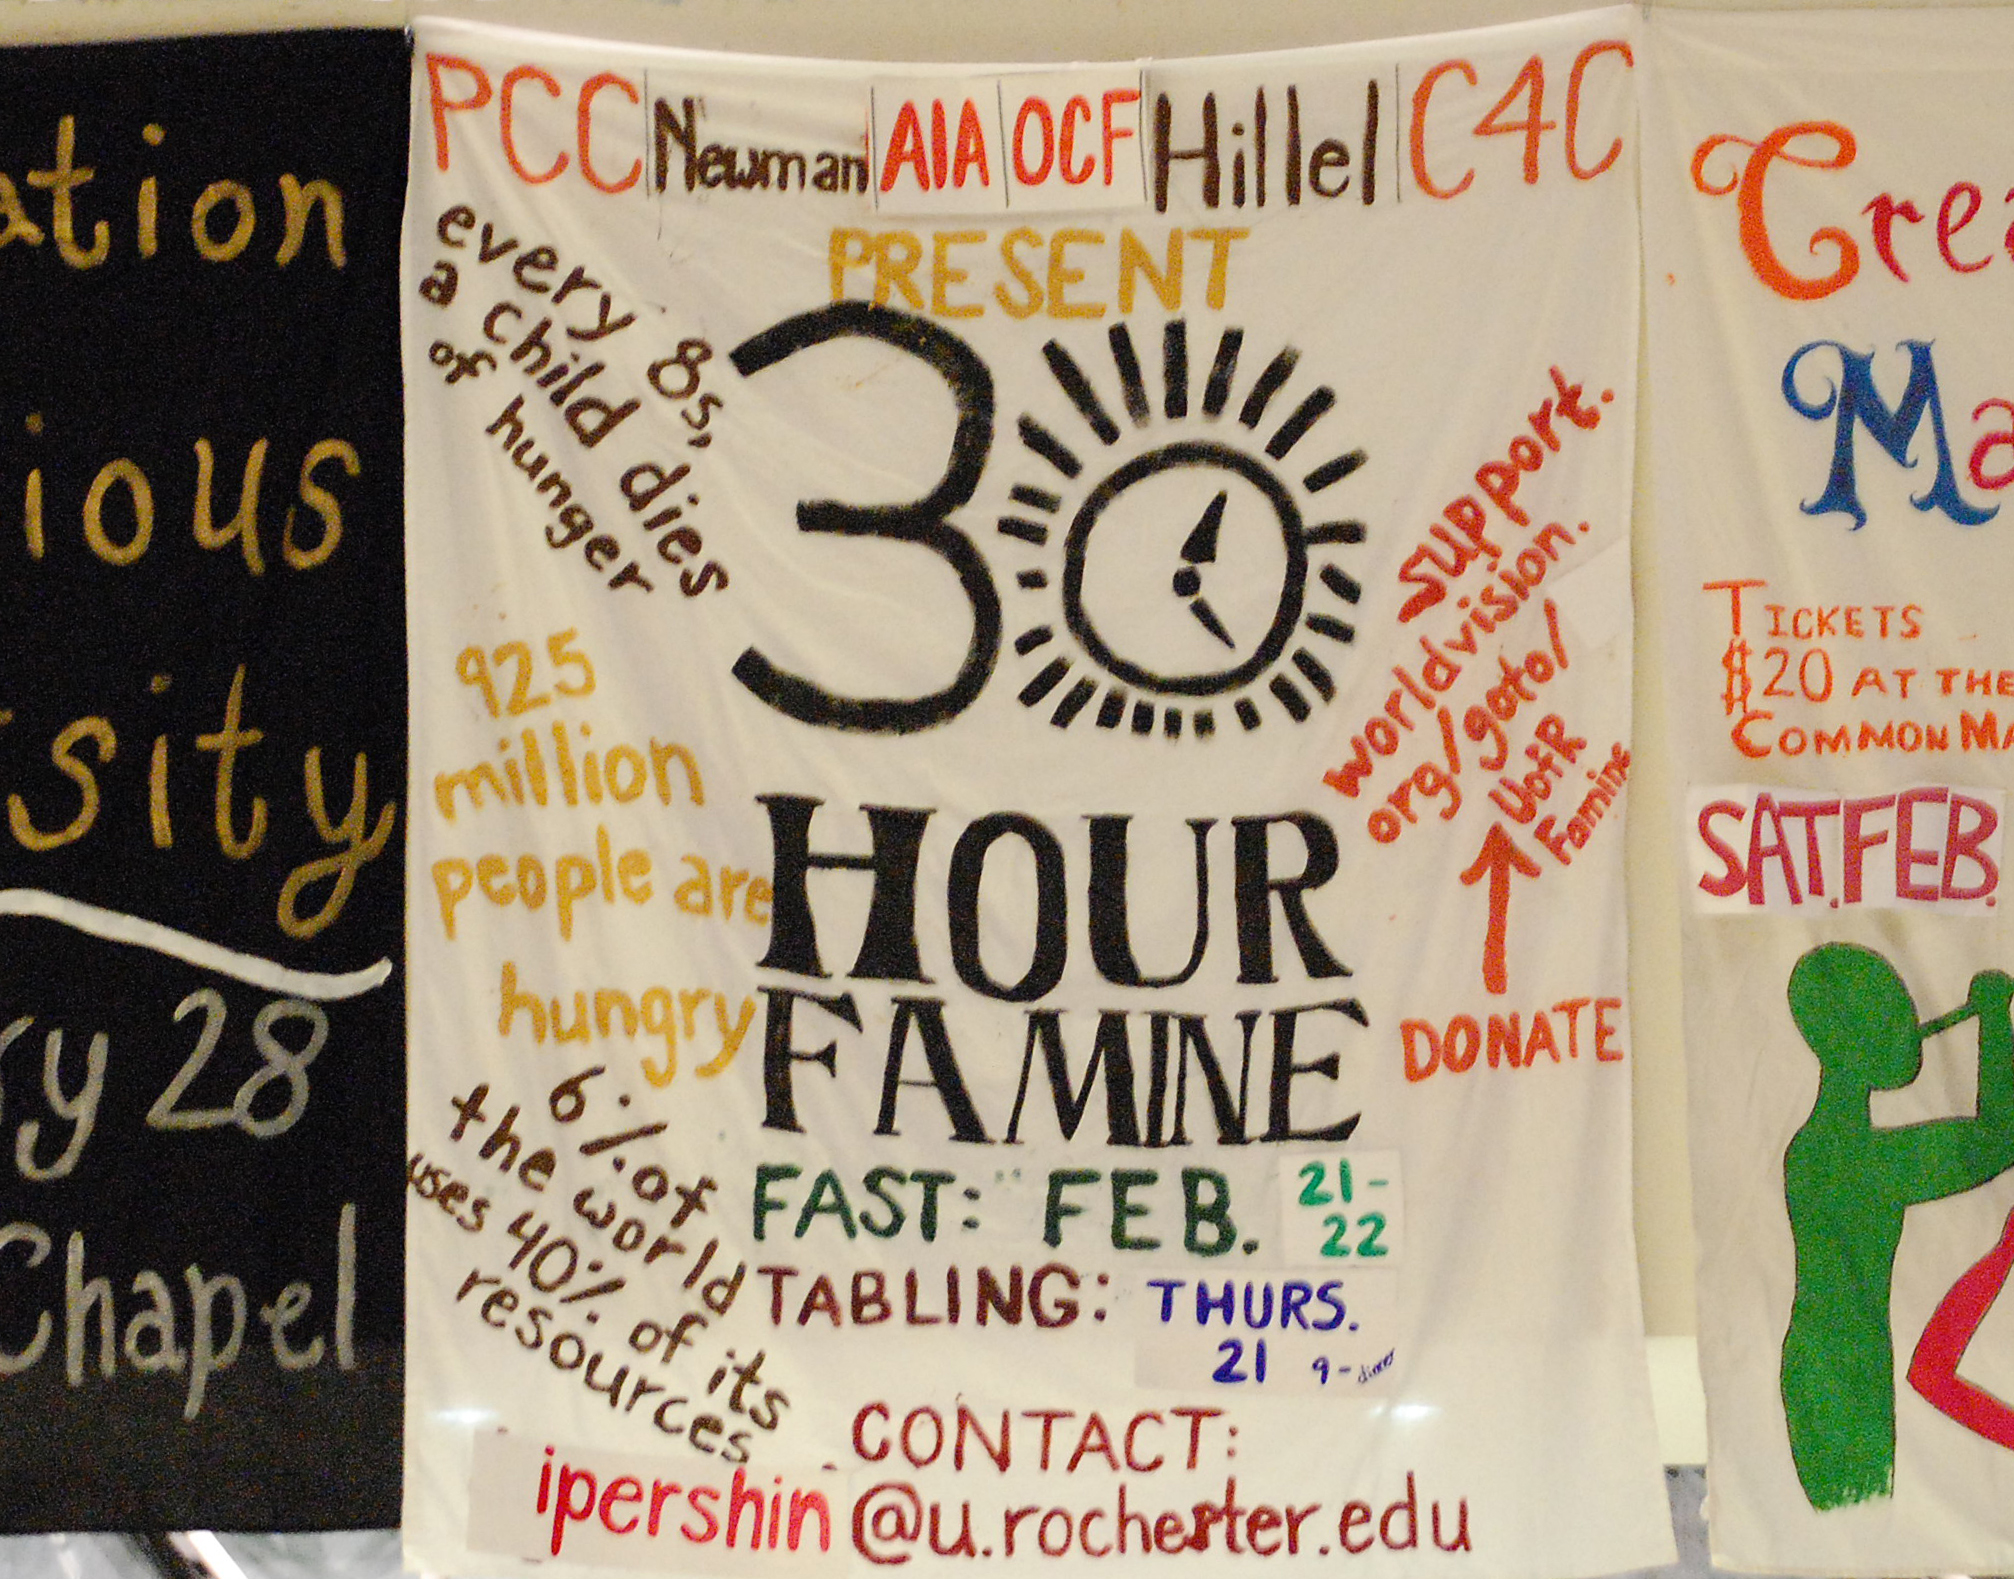 ation
ious
sity
ry 28
Chapel
PCC Newman AIA OCF Hillel C4C
PRESENT
30
HOUR
FAMINE
every 8s,
a child dies
of hunger
925
million
people are
hungry
6% of
the world
uses 40% of its
resources
support.
worldvision.
org/goto/
UofR
Famine
DONATE
FAST: FEB. 21-
22
TABLING: THURS.
21 9-dinner
CONTACT:
ipershin@u.rochester.edu
Crea
Ma
TICKETS
$20 AT THE
COMMON MA
SAT. FEB.